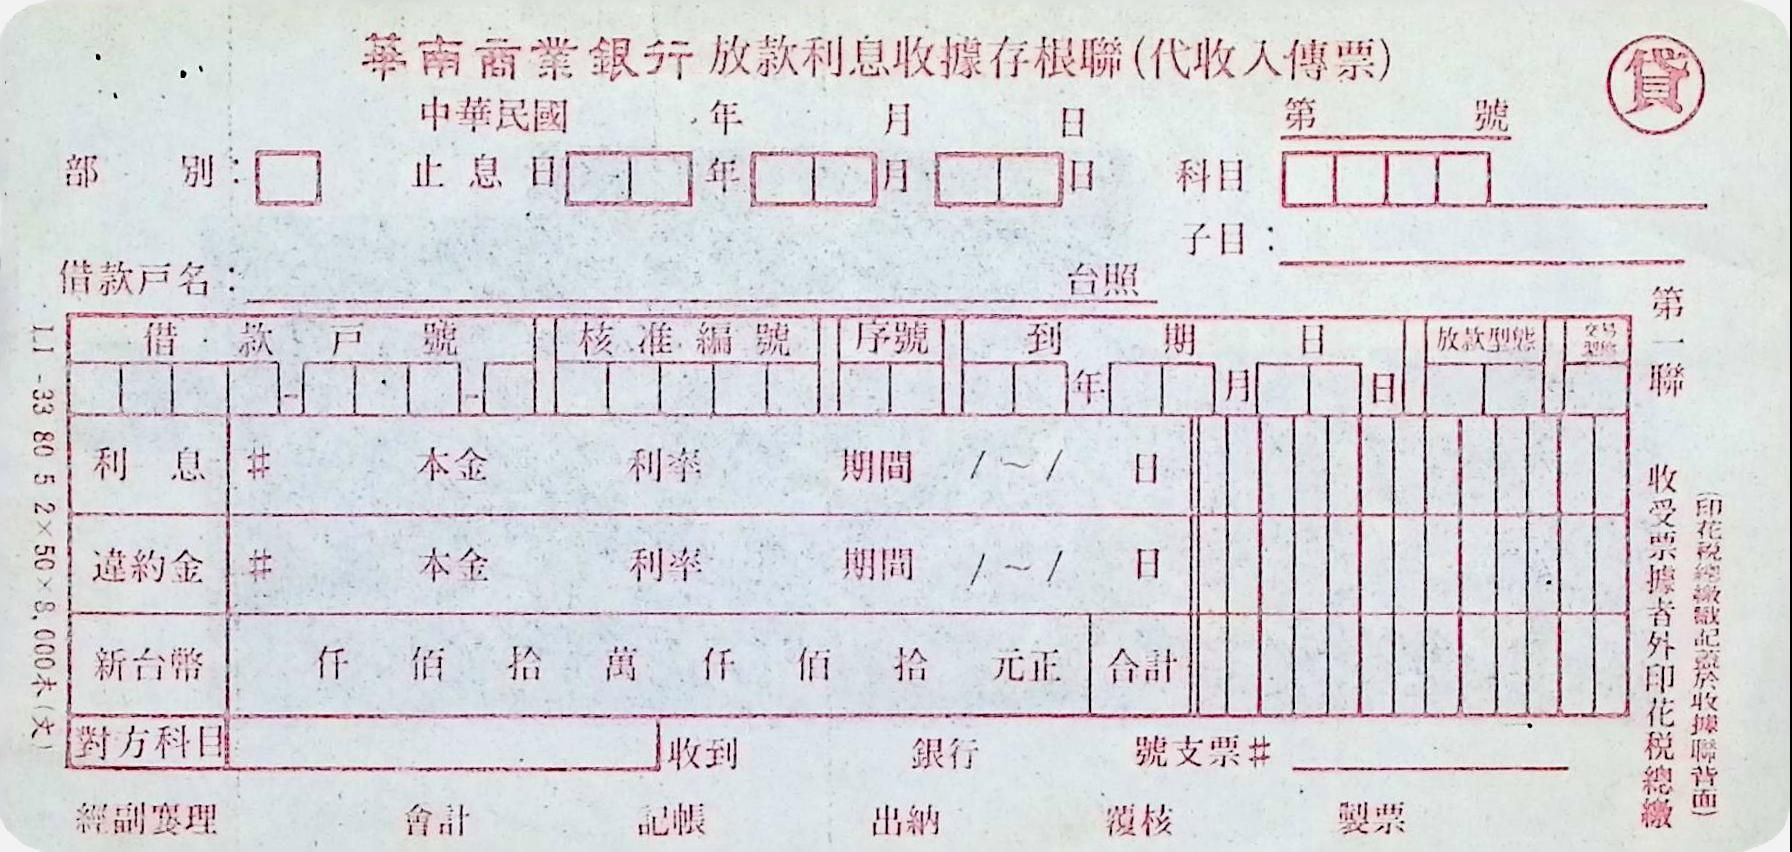 華南商業銀行放款利息收據存根聯(代收入傳票)
貸
中華民國 年 月 日 第 號
部 別： 止息日 年 月 日 科目
子目：
借款戶名： 台照
借款戶號 核准編號 序號 到期日 放款型態 交易型態
- - 年 月 日
利息 # 本金 利率 期間 / ~ / 日
違約金 # 本金 利率 期間 / ~ / 日
新台幣 仟 佰 拾 萬 仟 佰 拾 元正 合計
對方科目 收到 銀行 號支票#
經副襄理 會計 記帳 出納 覆核 製票
第一聯 收受票據者外印花稅總繳
(印花稅總繳戳記蓋於收據聯背面)
L1 -33 80 5 2×50×8,000本(文)